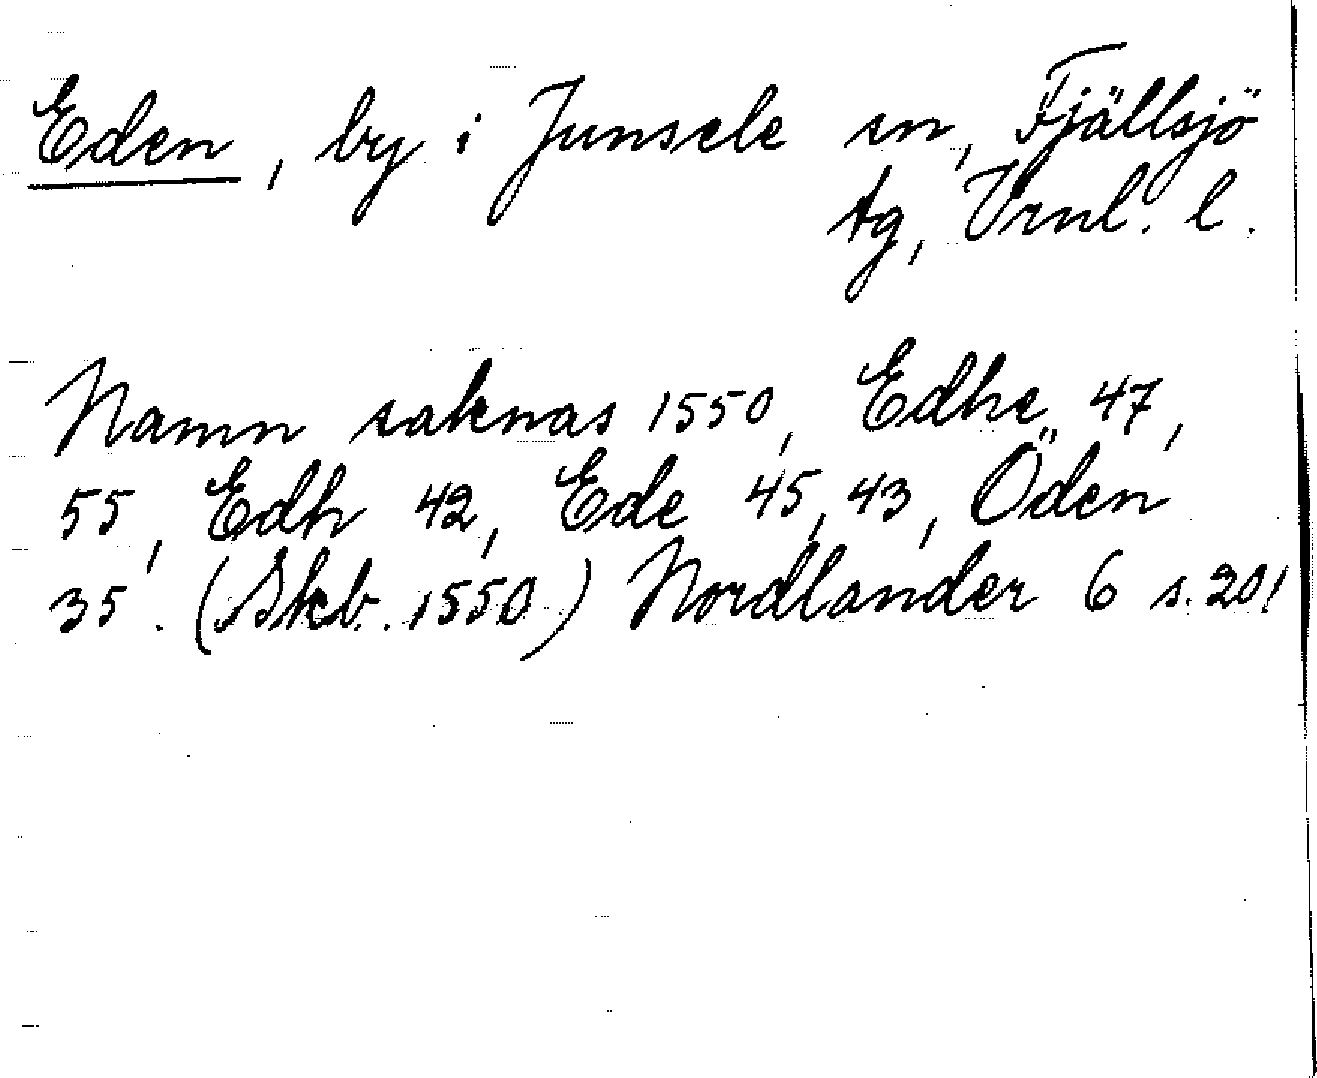 Eden, by i Junsele sn, Fjällsjö
tg, Vrnl. l.
Namn saknas 1550, Edhe 47,
55, Edh 42, Ede 45, 43, Öden
35. (Skb. 1550) Nordlander 6 s. 201